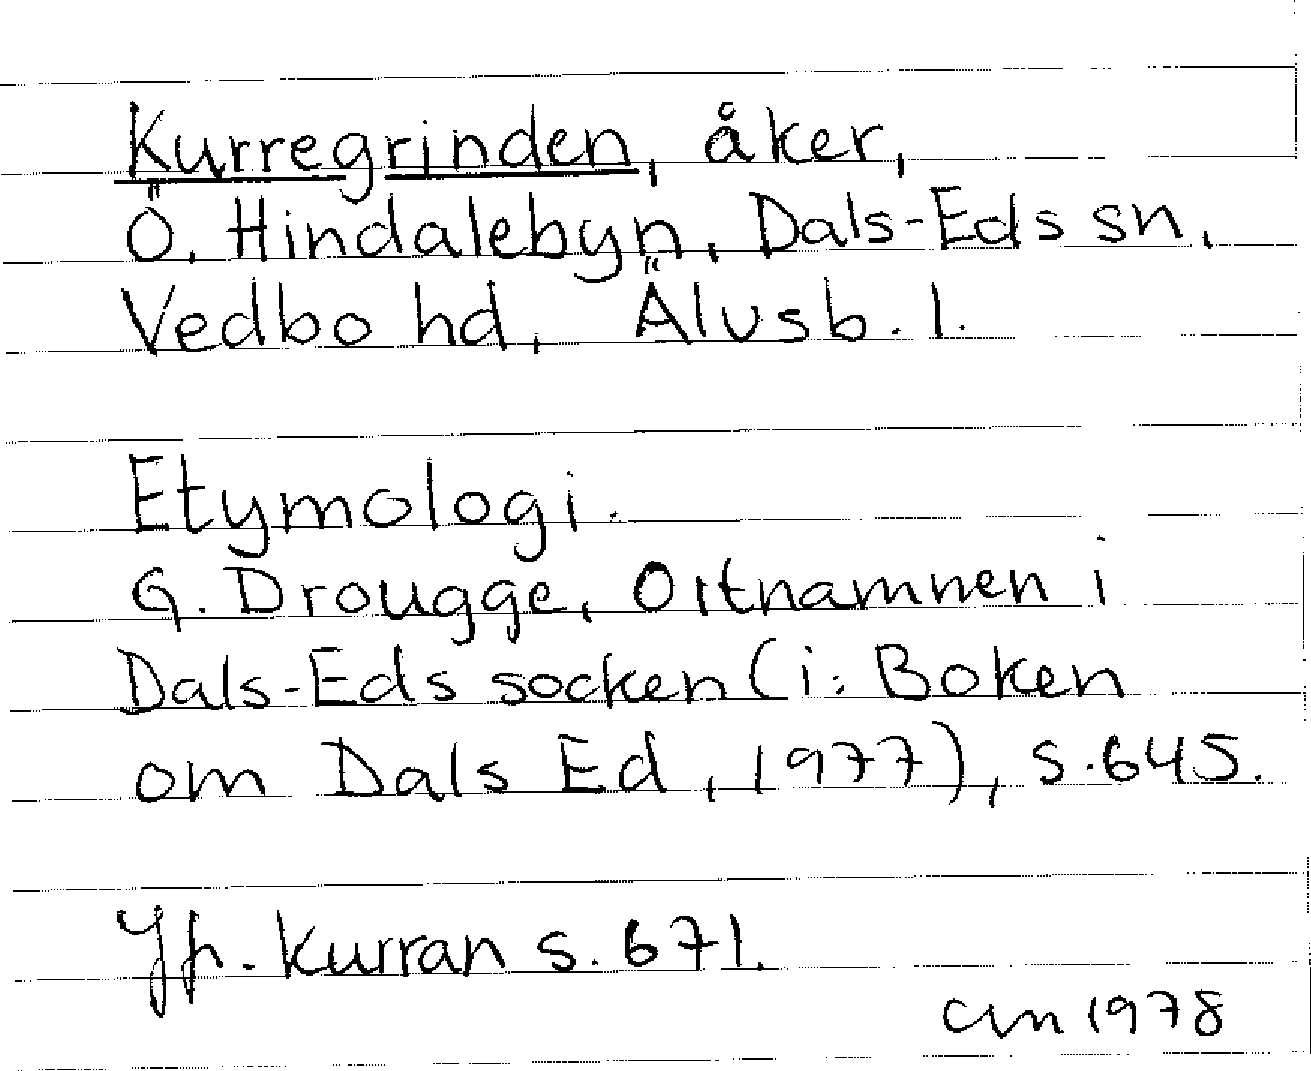 Kurregrinden, åker,
Ö. Hindalebyn, Dals-Eds sn,
Vedbo hd, Älvsb. l.
Etymologi.
G. Drougge, Ortnamnen i
Dals-Eds socken (i: Boken
om Dals Ed, 1977), s. 645.
Jfr. Kurran s. 671.
1978